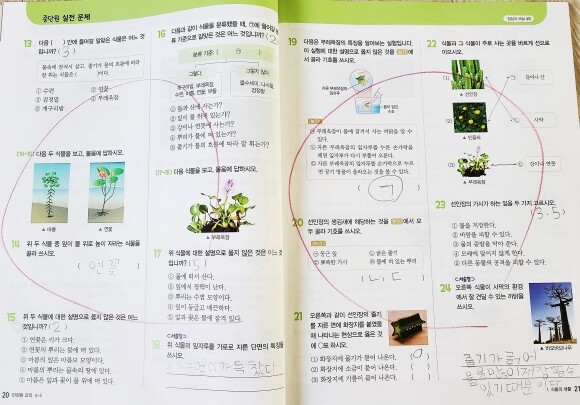 중단원 실전 문제
13 다음 ( ) 안에 들어갈 알맞은 식물은 어느 것입니까? ( 3 )
물속에 잠겨서 살고, 줄기가 물의 흐름에 따라 잘 휘는 식물은 ( )이다.
① 수련 ② 연꽃
③ 검정말 ④ 부레옥잠
⑤ 개구리밥
[14~15] 다음 두 식물을 보고, 물음에 답하시오.
▲ 마름 ▲ 연꽃
14 위 두 식물 중 잎이 물 위로 높이 자라는 식물을 골라 쓰시오.
( 연꽃 )
15 위 두 식물에 대한 설명으로 옳지 않은 것은 어느 것입니까? ( 2 )
① 연꽃은 키가 크다.
② 연꽃의 뿌리는 물에 떠 있다.
③ 마름의 잎은 마름모 모양이다.
④ 마름의 뿌리는 물속의 땅에 있다.
⑤ 마름은 잎과 꽃이 물 위에 떠 있다.
20
16 다음과 같이 식물을 분류했을 때, ㉠에 들어갈 분류 기준으로 알맞은 것은 어느 것입니까? ( 2
분류 기준: ( ㉠ )
그렇다. 그렇지 않다.
개구리밥, 부레옥잠, 수련, 마름, 연꽃, 부들
물수세미, 나사말, 검정말
① 들과 산에 사는가?
② 잎이 물 위에 있는가?
③ 강이나 연못에 사는가?
④ 뿌리가 물에 떠 있는가?
⑤ 줄기가 물의 흐름에 따라 잘 휘는가?
[17~18] 다음 식물을 보고, 물음에 답하시오.
▲ 부레옥잠
17 위 식물에 대한 설명으로 옳지 않은 것은 어느 것입니까? ( 5 )
① 물에 떠서 산다.
② 잎에서 광택이 난다.
③ 뿌리는 수염 모양이다.
④ 잎이 둥글고 매끈하다.
⑤ 잎과 꽃은 물에 잠겨 있다.
서술형
18 위 식물의 잎자루를 가로로 자른 단면의 특징을 쓰시오.
19 다음은 부레옥잠의 특징을 알아보는 실험입니다. 이 실험에 대한 설명으로 옳지 않은 것을 보기에서 골라 기호를 쓰시오.
( ㄱ )
20 선인장의 생김새에 해당하는 것을 보기에서 모두 골라 기호를 쓰시오.
㉠ 둥근 잎 ㉡ 굵은 줄기
㉢ 뾰족한 가시 ㉣ 물에 떠 있는 뿌리
( ㄴ, ㄷ )
21 오른쪽과 같이 선인장의 줄기를 자른 면에 화장지를 붙였을 때 나타나는 현상으로 옳은 것에 ○표 하시오.
(1) 화장지에 물기가 묻어 나온다. ( ○ )
(2) 화장지에 소금이 묻어 나온다. ( )
(3) 화장지에 기름이 묻어 나온다. ( )
22 식물과 그 식물이 주로 사는 곳을 바르게 선으로 이으시오.
(1) ▲ 선인장 ㉠ 들이나 산
(2) ▲ 민들레 ㉡ 사막
(3) ▲ 부레옥잠 ㉢ 강이나 연못
23 선인장의 가시가 하는 일을 두 가지 고르시오.
( 3, 5 )
① 물을 저장한다.
② 바람을 피할 수 있다.
③ 물의 증발을 막아 준다.
④ 모래에 덮이지 않게 한다.
⑤ 다른 동물의 공격을 피할 수 있다.
서술형
24 오른쪽 식물이 사막의 환경에서 잘 견딜 수 있는 까닭을 쓰시오.
▲ 바오바브나무
줄기가 굵어
물을 많이 저장할 수
있기 때문이다
1. 식물의 생활 21